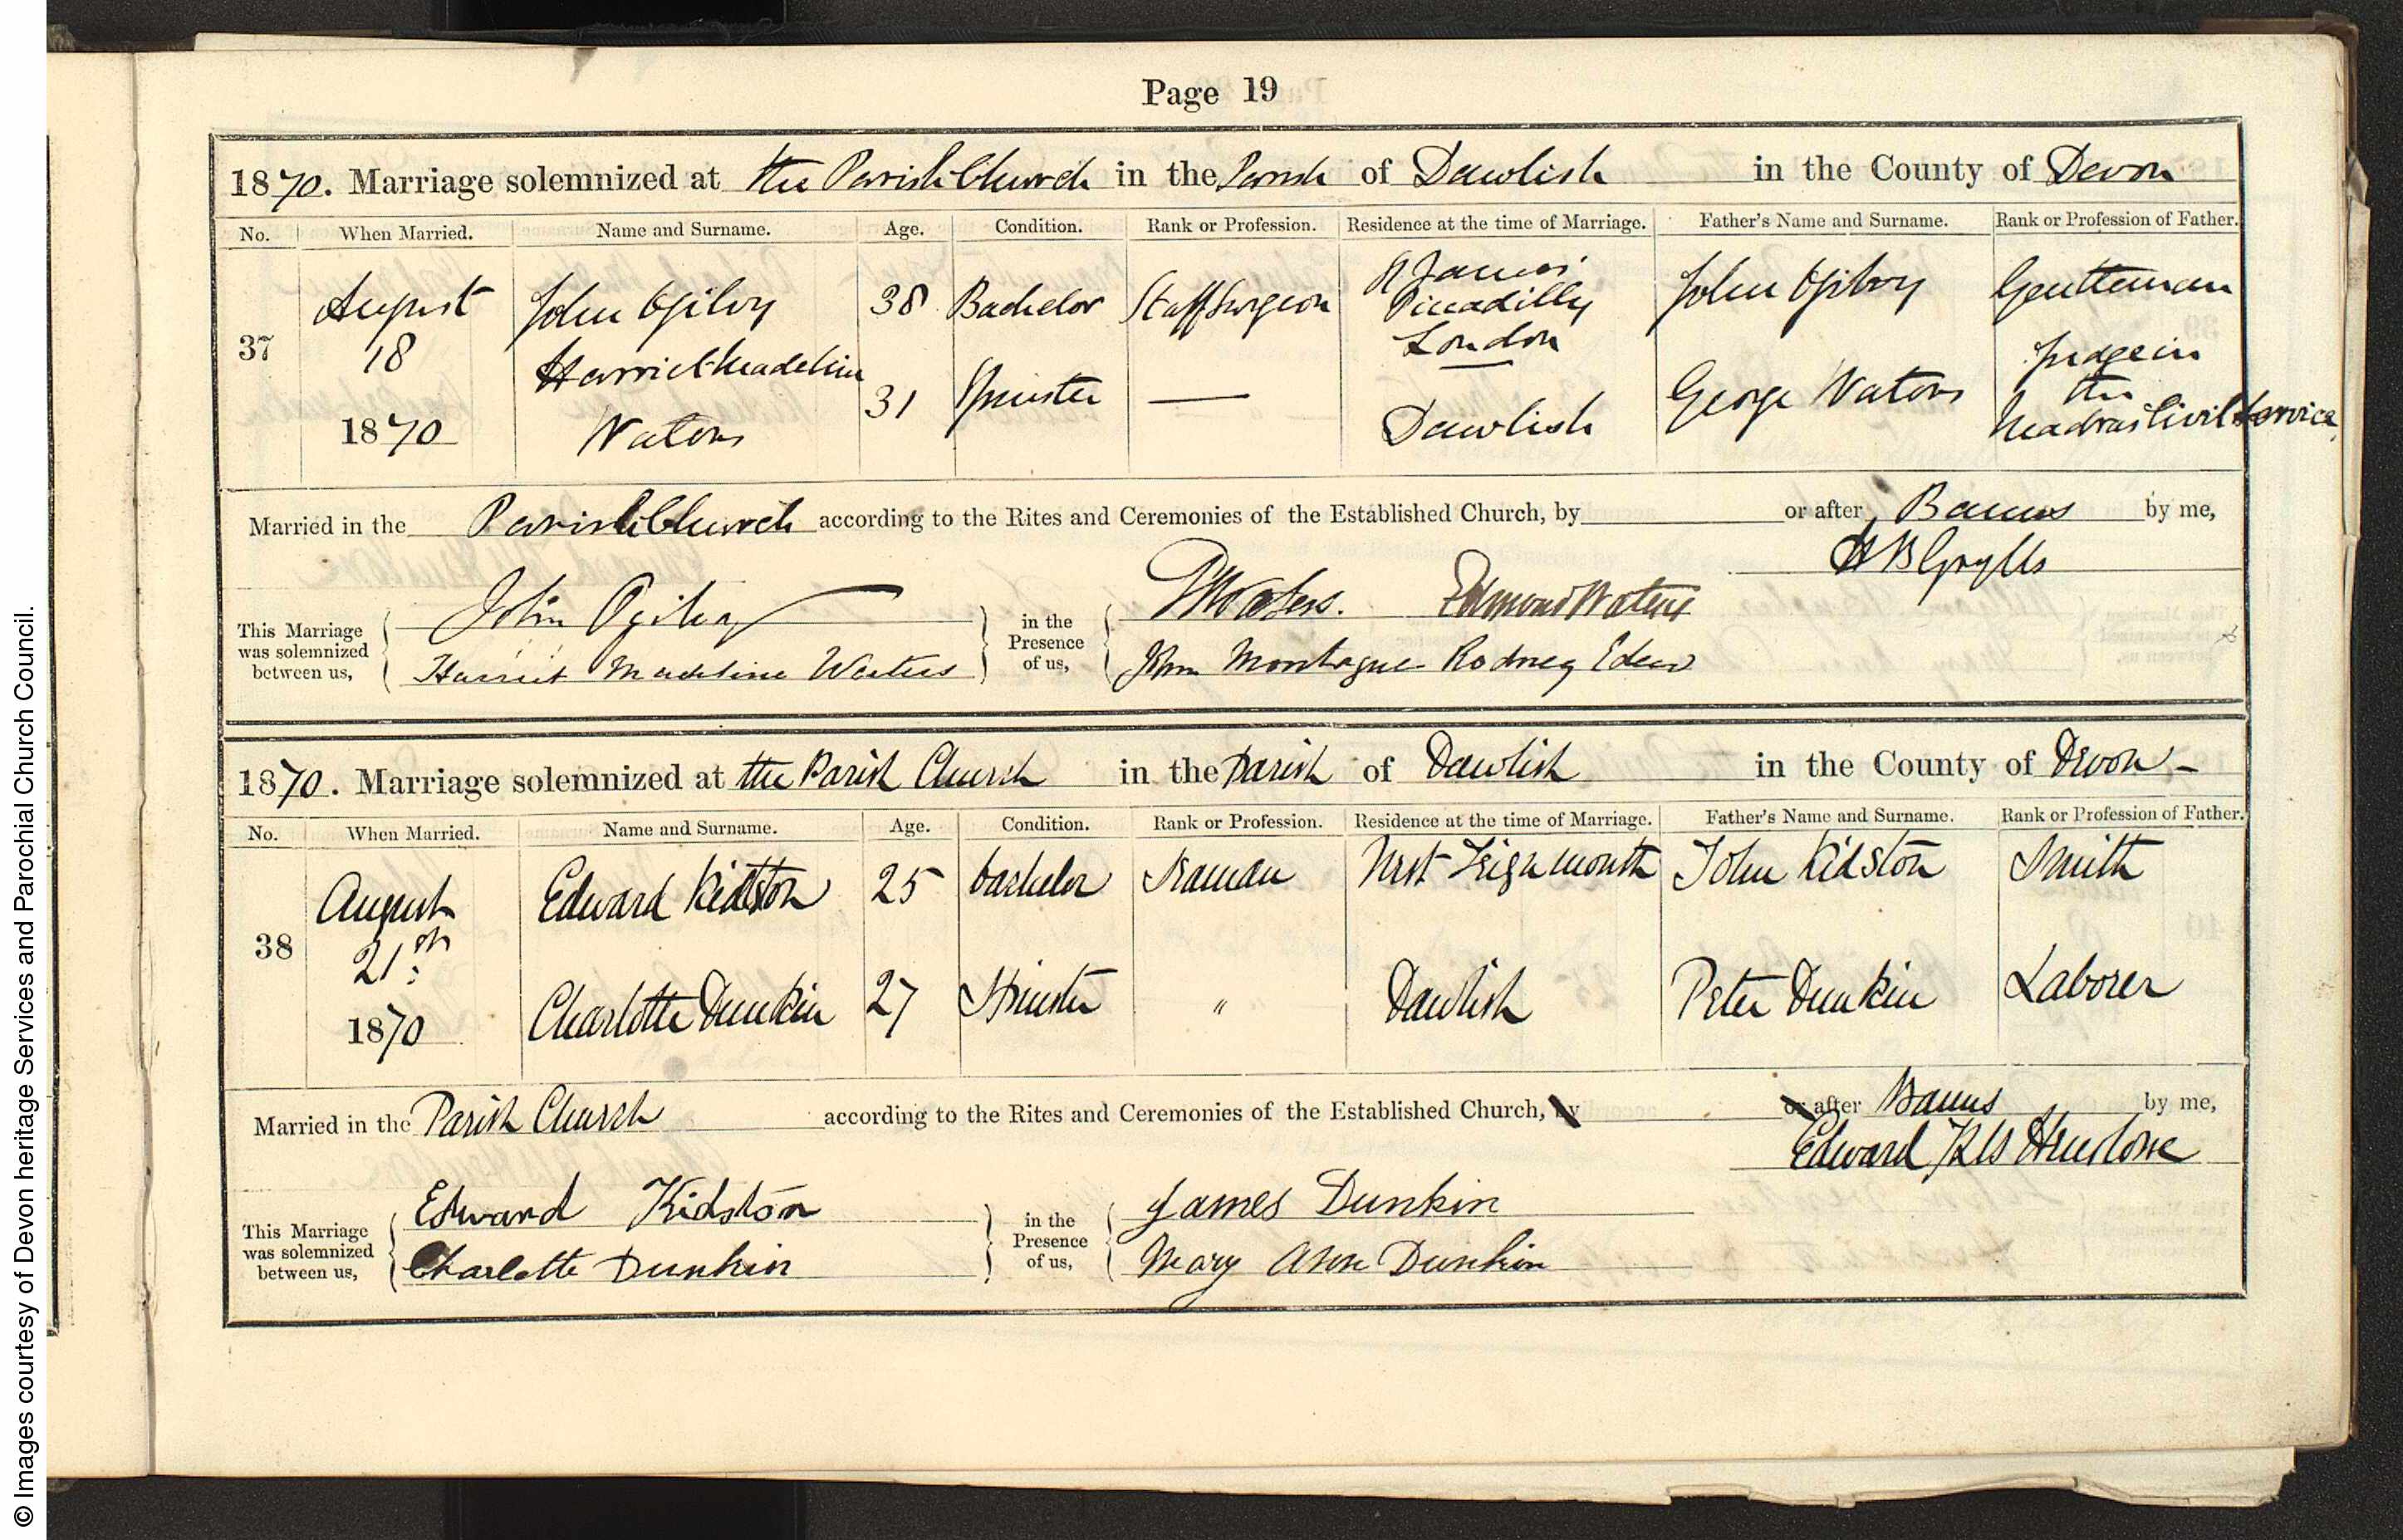 Page 19
1870. Marriage solemnized at the Parish Church in the Parish of Dawlish in the County of Devon
No. When Married. Name and Surname. Age. Condition. Rank or Profession. Residence at the time of Marriage. Father's Name and Surname. Rank or Profession of Father.
37 August 18 1870 John Ogilvy 38 Bachelor Staff Surgeon St James' Piccadilly London John Ogilvy Gentleman
Harriet Madeline Waters 31 Spinster — Dawlish George Waters Judge in the Madras Civil Service
Married in the Parish Church according to the Rites and Ceremonies of the Established Church, by or after Banns by me,
H B Grylls
This Marriage was solemnized between us, John Ogilvy in the Presence of us, Waters. Edmond Waters
Harriet Madeline Waters John Montague Rodney Eden
1870. Marriage solemnized at the Parish Church in the Parish of Dawlish in the County of Devon -
No. When Married. Name and Surname. Age. Condition. Rank or Profession. Residence at the time of Marriage. Father's Name and Surname. Rank or Profession of Father.
38 August 21st 1870 Edward Kidston 25 bachelor Seaman West Teignmouth John Kidston Smith
Charlotte Dunkin 27 Spinster " Dawlish Peter Dunkin Laborer
Married in the Parish Church according to the Rites and Ceremonies of the Established Church, by or after Banns by me,
Edward
This Marriage was solemnized between us, Edward Kidston in the Presence of us, James Dunkin
Charlotte Dunkin Mary Ann Dunkin
© Images courtesy of Devon heritage Services and Parochial Church Council.